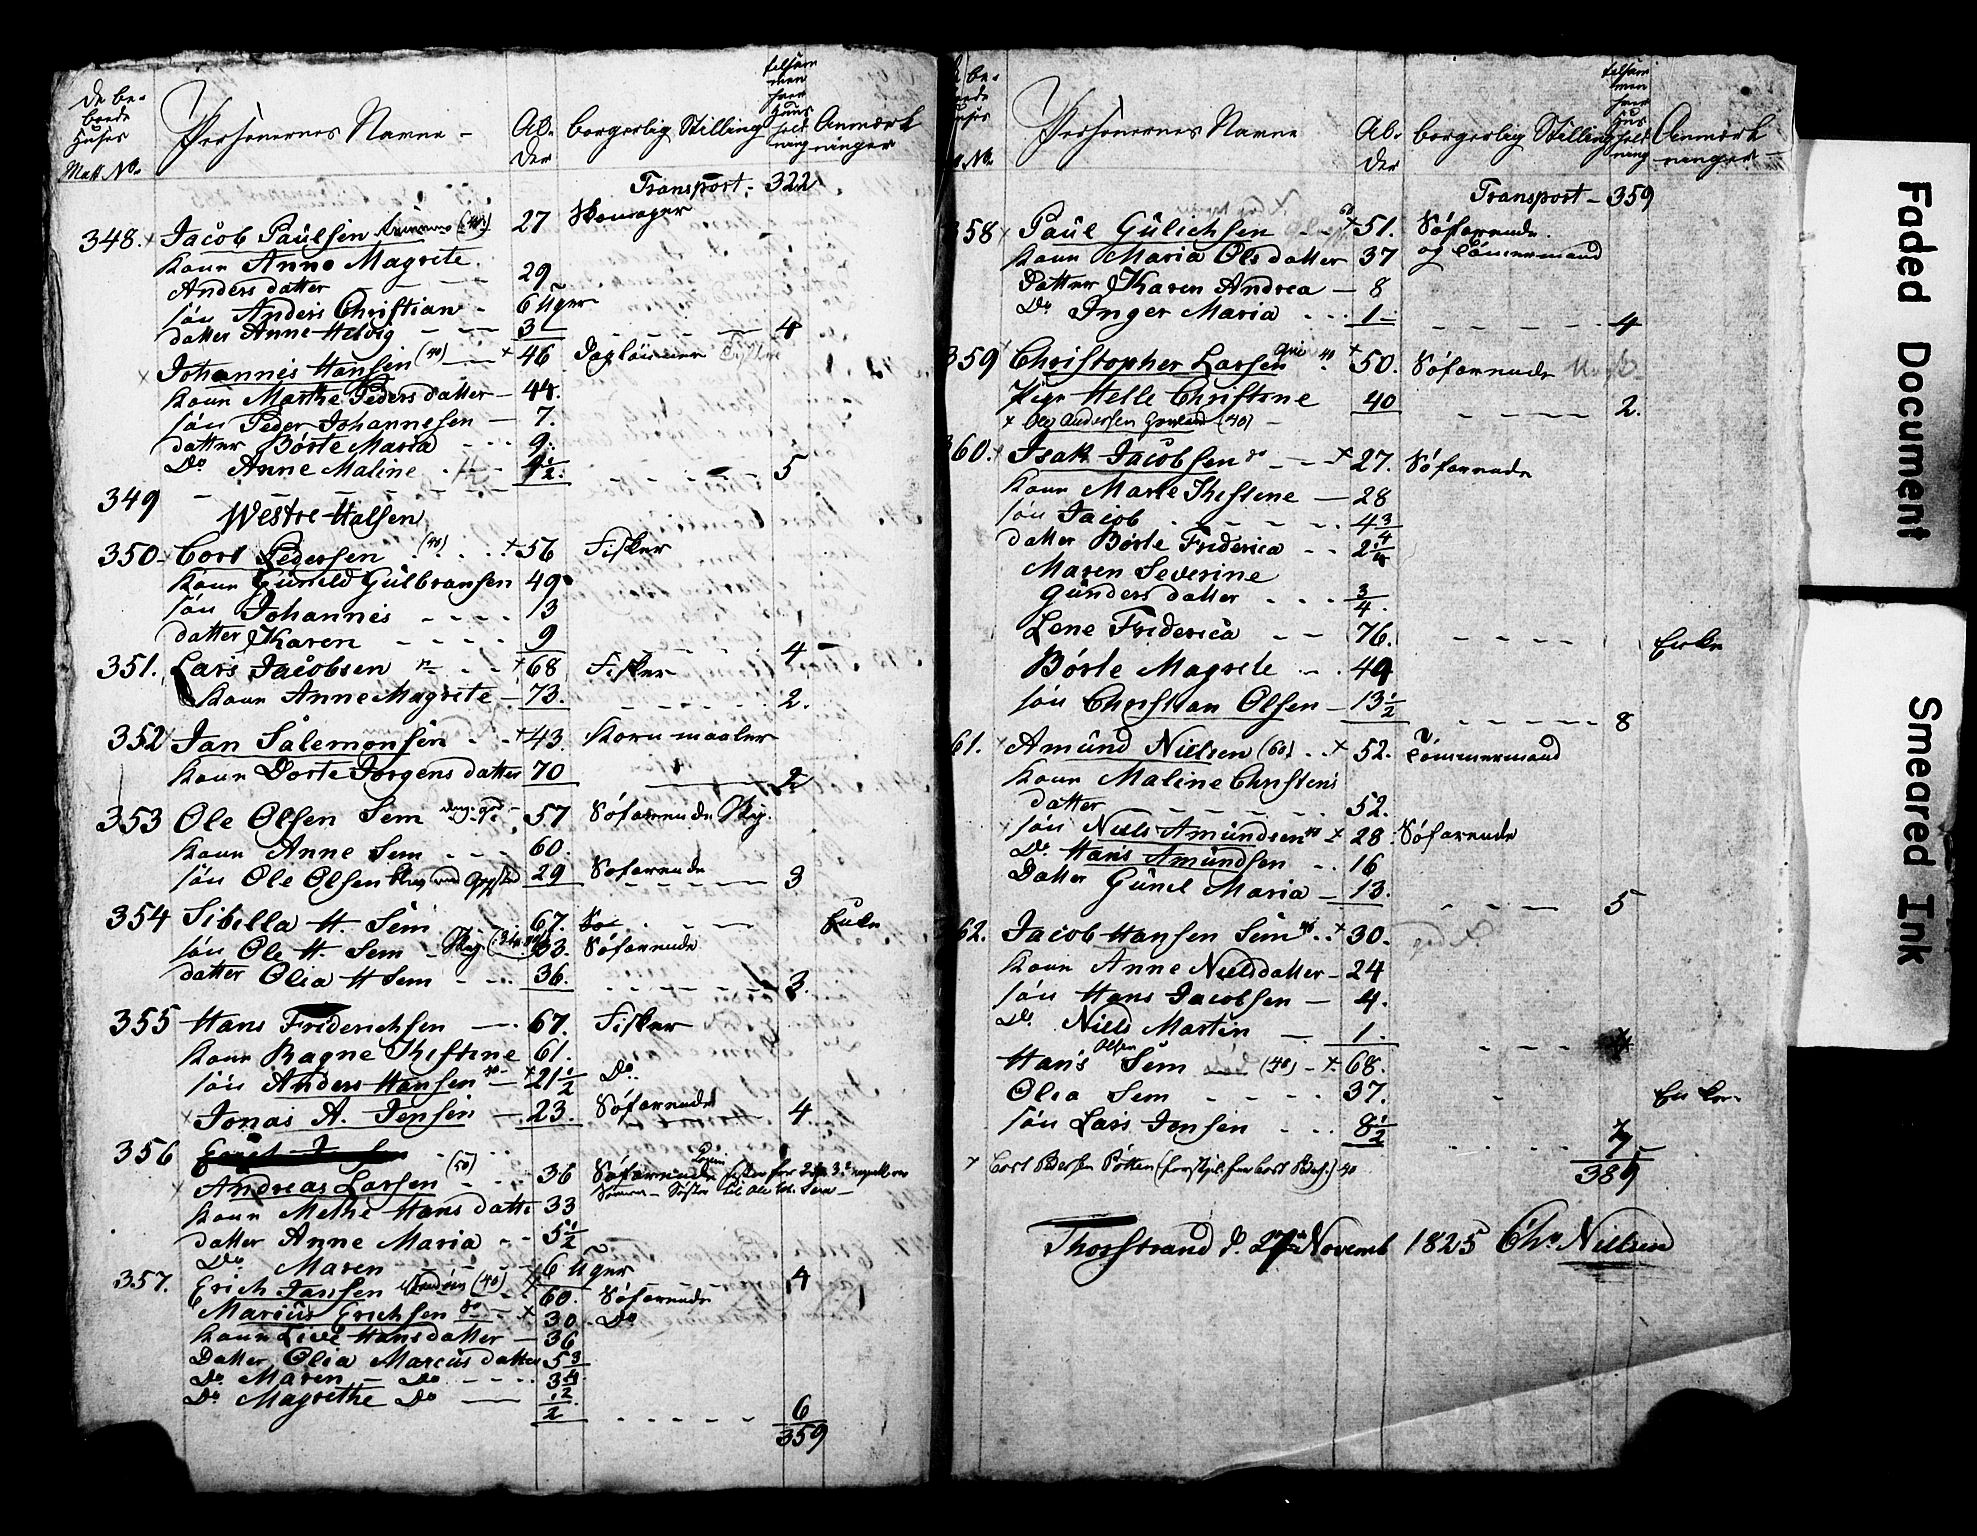 De be-
boede
Huses
Matt No.
Personernes Navne -
Al-
der
borgerlig Stilling
tilsam
men
hver
Huus
hold
ning
Anmærk
ninger
Transport - 322
348. Jacob Paulsen (40) 27 Skomager
kone Anne Magrete
Anders datter - - - 29
søn Anders Christian - 6 Uger
datter Anne Helvig - - - 3 - - - - - 4
Johannes Hansen (40) - + 46 Daglønner
kone Marthe Peders datter - 44.
søn Peder Johannesen - 7.
datter Børte Maria - - - 9.
Do Anne Maline - 1/2. - - - - 5
349 - - - - - -
Westre Halsen
350 - Cort Pedersen (40) - - + 56 Fisker
kone Gunild Gulbransen 49
søn Johannes - - - - 13
datter Karen - - - - 9 - - - - 4 -
351. Lars Jacobsen - - + 68 Fisker
kone Anne Magrete - 73. - - - - - 2.
352 Jan Salemonsen - - + 43. Korn maaler
kone Dorte Jorgens datter 70 2
353 Ole Olsen Sem - 57 Søfarende Skip.
kone Anne Sem - - - 60.
søn Ole Olsen 29 Søfarende - - - - - 3
354 Sibilla H. Sem 67. Do - - - Enke
søn Ole H. Sem - 33. Søfarende
datter Olia H Sem - - - 36. - - - - - 3.
355 Hans Friderichsen - - 67. Fisker
kone Ragne Thestine 61.
søn Anders Hansen - + 21 1/2 Do.
Jonas A. Jensen - 23. Søfarende 4.
356
Andreas Larsen (50) - - - 36 Søfarende
kone Methe Hans datter 33
datter Anne Maria - - 5 1/2
Do Maren - - - 6 Uger 4
357. Erich Jansen (40) 60. Søfarende
Marius Erichsen - + 30 - Do
kone Live Hansdatter - 36
Datter Olia Marcus datter 5 3/4
Do Maren - Do - - - - 3 1/2
Do Magrethe Do - 1/2 - - - - - 6
359
De be-
boede
Huses
Matt No.
Personernes Navne
Al-
der
borgerlig Stilling
tilsam
men
hver
Hus
hold
ning
Anmærk
ninger -
Transport - 359
358 Paul Gulichsen - - + 51. Søfarende
kone Maria Ols datter 37 og Tømmermand
Datter Karen Andrea - 8
Do Inger Maria - - - 1 - - - - - - - 4
359 Christopher Larsen + 50. Søfarende
Pige Helle Christine 40 - - - - - 2.
+ Andersen (40) -
360. Isak Jacobsen - - + 27. Søfarende
kone Marte Thestene - 28
søn Jacob - - - - 4 3/4
datter Børte Friderica - - 2 1/4
Maren Severine
Gunders datter - - - 3/4.
Lene Friderica - - 76. - - - - Enke
Børte Magrete - - 44
søn Christian Olsen - 13 1/2 - - - - - - 8
61. Amund Nielsen (60) - - + 52. Tømmermand
kone Maline Christens
datter - - - - - 52.
søn Niels Amundsen + 28. Søfarende
Do Hans Amundsen - - 16
Datter Gunil Maria - 13. - - - - 5
62. Jacob Hansen Sem - + 30.
kone Anne Nielsdatter - 24
søn Hans Jacobsen - 4.
Do. Niels Martin - 1. - - - -
Hans Olsen Sem (40) - + 68.
Olia Sem - - - - 37. - Enke
søn Lars Jensen - - - 8 1/2 - - - - 7
389
+ Cort Pedersen 40
Thorstrand d. 27 Novemb 1825 Chr Nielsen
Faded Document
Smeared Ink